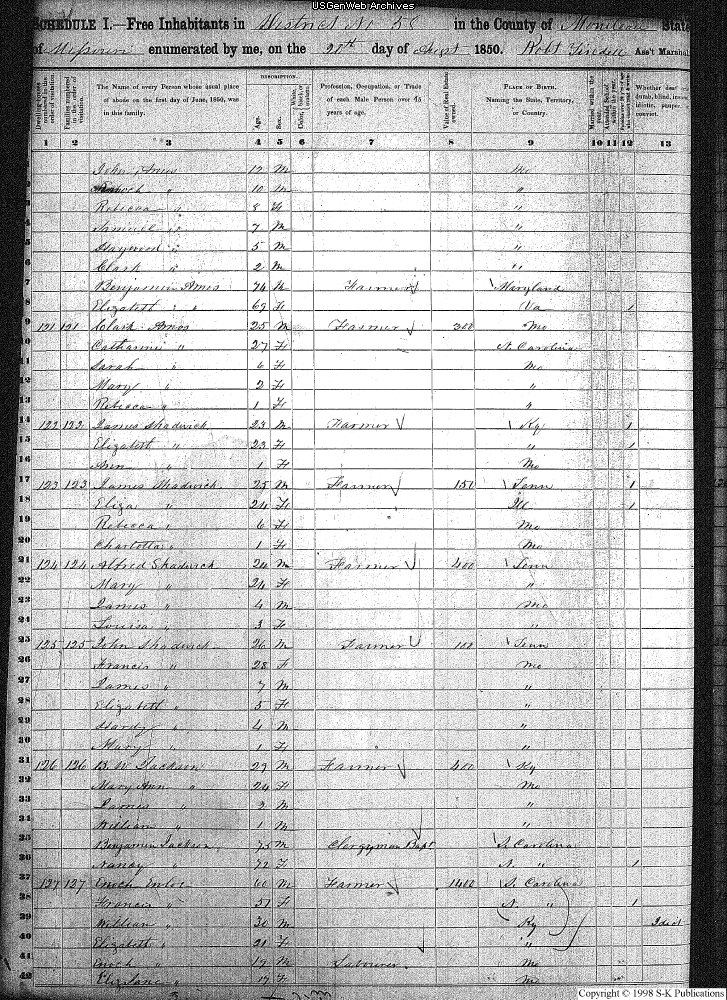 USGenWeb Archives
SCHEDULE I.—Free Inhabitants in District No 56 in the County of Moniteau State
of Missouri enumerated by me, on the 20th day of Sept 1850. Robt Ass't Marshal
DESCRIPTION.
The Name of every Person whose usual place of abode on the first day of June, 1850, was in this family.
Age.
Sex.
Profession, Occupation, or Trade of each Male Person over 15 years of age.
Value of Real Estate owned.
PLACE OF BIRTH. Naming the State, Territory, or Country.
1 2 3 4 5 6 7 8 9 10 11 12 13
John Amos 12 M Mo
Enoch " 10 M "
Rebecca " 8 F "
Samuel " 7 M "
Haywood " 5 M "
Clark " 2 M "
Benjamin Amos 74 M Farmer Maryland
Elizabeth " 69 F Va 1
9 121 121 Clark Amos 25 M Farmer 300 Mo
Catharine " 27 F N. Carolina
Sarah " 6 F Mo
Mary " 2 F "
Rebecca " 1 F "
14 122 122 James Shadwick 23 M Farmer Ky 1
Elizabeth " 23 F " 1
16 Ann " 1 F Mo
17 123 123 James Shadwick 25 M Farmer 150 Tenn 1
18 Eliza " 24 F Ill 1
19 Rebecca " 6 F Mo
20 Charlotta " 1 F Mo
21 124 124 Alfred Shadwick 24 M Farmer 400 Tenn
22 Mary " 24 F "
23 James " 4 M Mo
24 Louisa " 3 F "
25 125 125 John Shadwick 26 M Farmer 100 Tenn
26 Francis " 28 F Mo
27 James " 7 M "
28 Elizabeth " 5 F "
29 Hardy " 4 M "
30 Mary " 1 F "
31 126 126 B. W Jackson 29 M Farmer 400 Ky
32 Mary Ann " 24 F Mo
33 James " 2 M "
34 William " 1 M "
35 Benjamin Jackson 75 M Clergyman Bapt S. Carolina
36 Nancy " 72 F N. " 1
37 127 127 Enoch Enloe 60 M Farmer 1400 S. Carolina
38 Francis " 57 F N. " 1
39 William " 30 M Ky Idiot
40 Elizabeth " 21 F "
41 Enoch " 19 M Labourer Mo
42 Eliz Jane " 17 F Mo
Copyright © 1998 S-K Publications